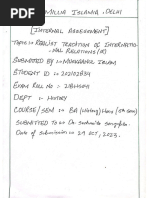 MILLIA ISLAMIA, DELHI
[INTERNAL ASSESSMENT]
TOPIC:- REALIST TRADITION OF INTERNATIO-
-NAL RELATIONS (IR)
SUBMITTED BY :-
STUDENT ID :- 202102834
EXAM ROLL NO :-
DEPT :- HISTORY
COURSE/SEM :- BA (History) Hons (5th sem)
SUBMITTED TO :- Dr.
Date of submission :- 29 OCT, 2023.